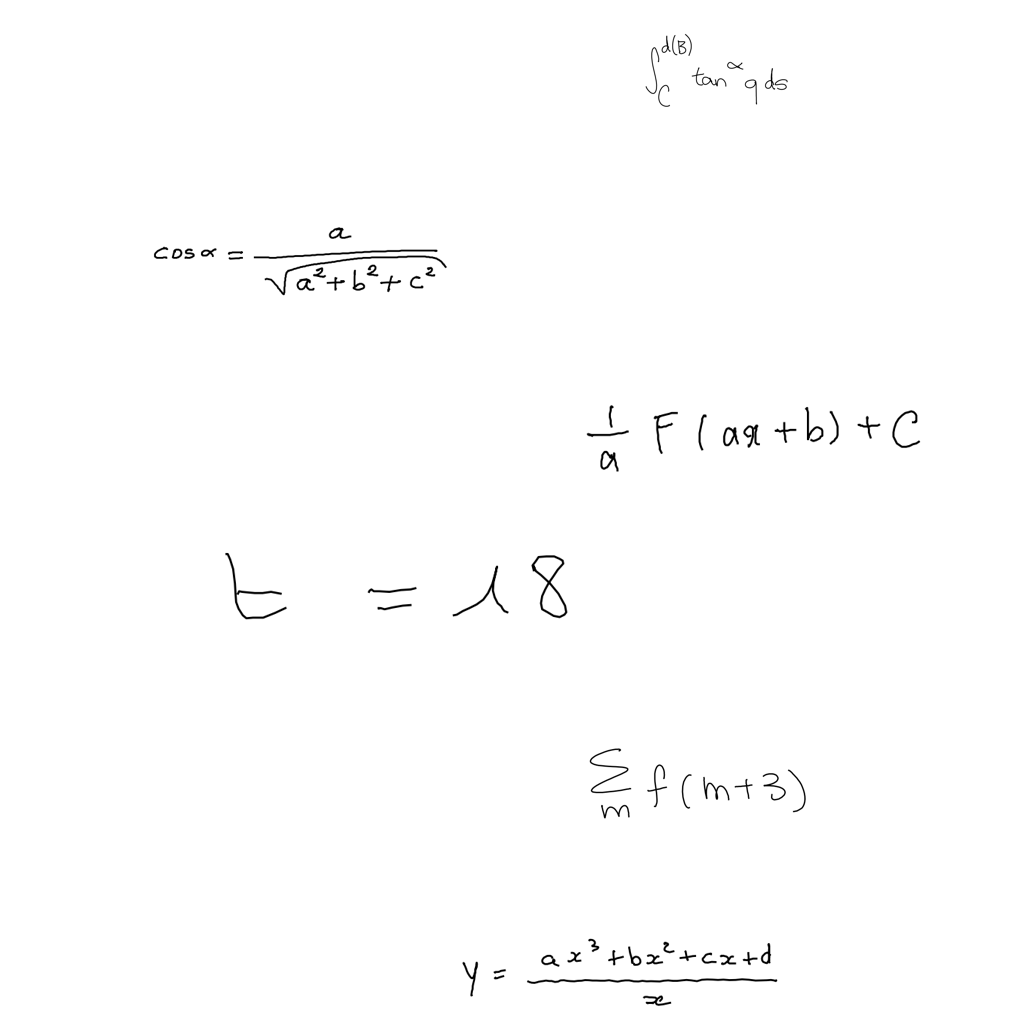 \int_{C}^{d(B)} \tan^{\alpha} q ds
\cos \alpha = \frac{a}{\sqrt{a^2 + b^2 + c^2}}
\frac{1}{a} F(ax + b) + C
t = 18
\sum_{m} f(m + 3)
y = \frac{ax^3 + bx^2 + cx + d}{x}